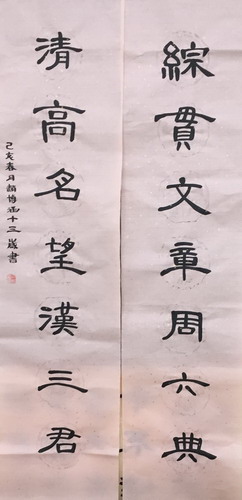 綜貫文章周六典
清高名望漢三君
己亥春月顏博涵十三歲書